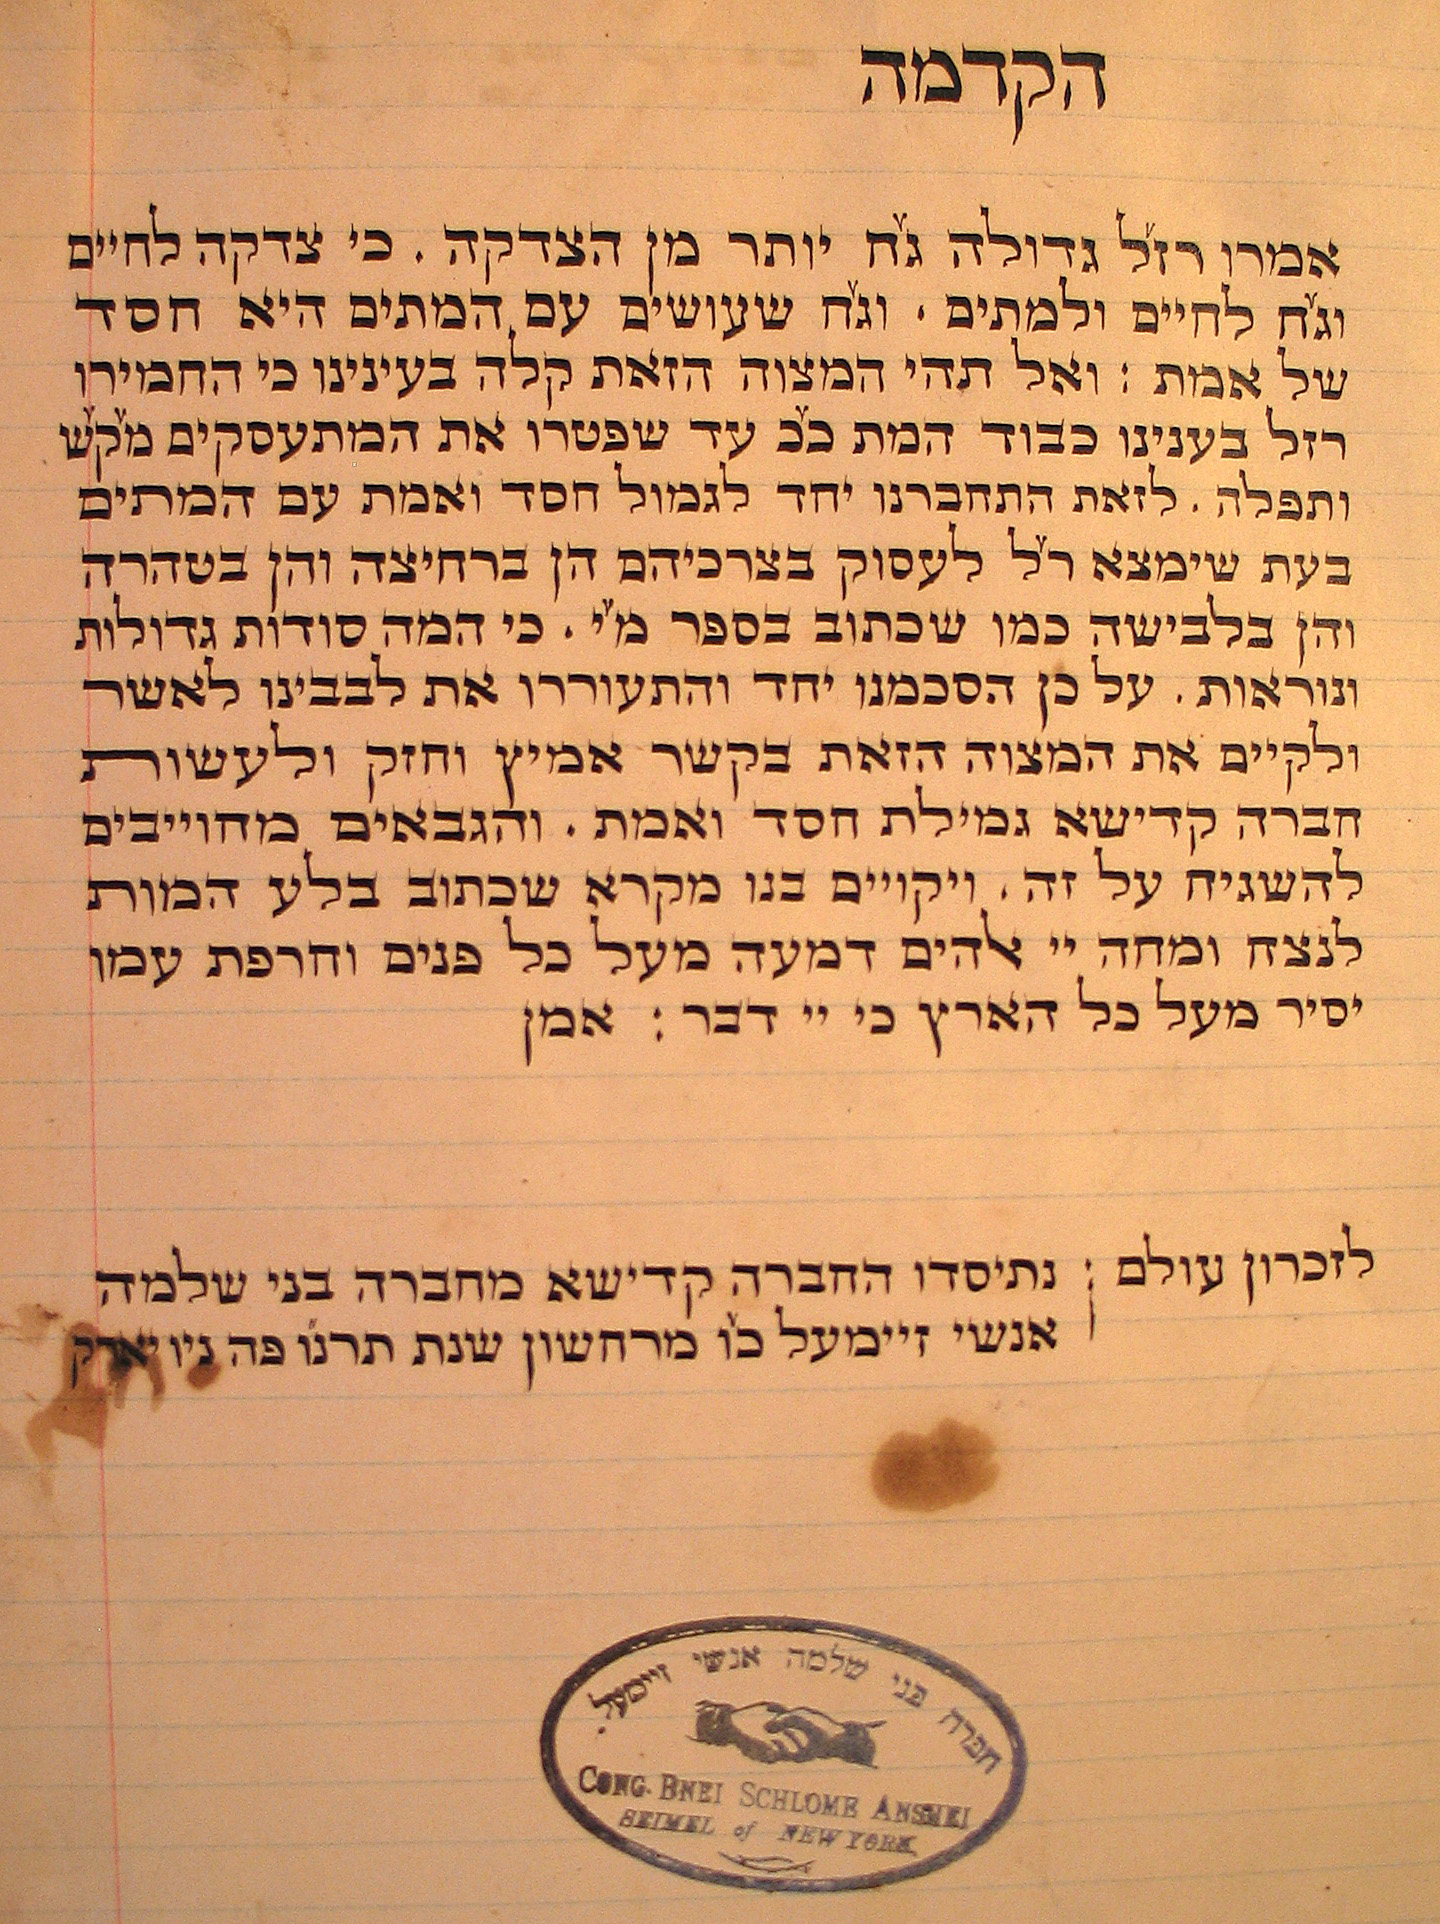 הקדמה
אמרו רז״ל גדולה ג״ח יותר מן הצדקה . כי צדקה לחיים
וג״ח לחיים ולמתים . וג״ח שעושים עם המתים היא חסד
של אמת : ואל תהי המצוה הזאת קלה בעינינו כי החמירו
רזל בענינו כבוד המת כ״כ עד שפטרו את המתעסקים מ״ק״ש
ותפלה . לזאת התחברנו יחד לגמול חסד ואמת עם המתים
בעת שימצא ר״ל לעסוק בצרכיהם הן ברחיצה והן בטהרה
והן בלבישה כמו שכתוב בספר מ״י . כי המה סודות גדולות
ונוראות . על כן הסכמנו יחד והתעוררו את לבבינו לאשר
ולקיים את המצוה הזאת בקשר אמיץ וחזק ולעשות
חברה קדישא גמילת חסד ואמת . והגבאים מחוייבים
להשגיח על זה . ויקויים בנו מקרא שכתוב בלע המות
לנצח ומחה יי אלהים דמעה מעל כל פנים וחרפת עמו
יסיר מעל כל הארץ כי יי דבר : אמן
לזכרון עולם : נתיסדו החברה קדישא מחברה בני שלמה
אנשי זיימעל כ״ו מרחשון שנת תרנ״ו פה ניו יארק
חברה בני שלמה אנשי זיימעל.
CONG. BNEI SCHLOME ANSHEI
SEIMEL of NEW YORK